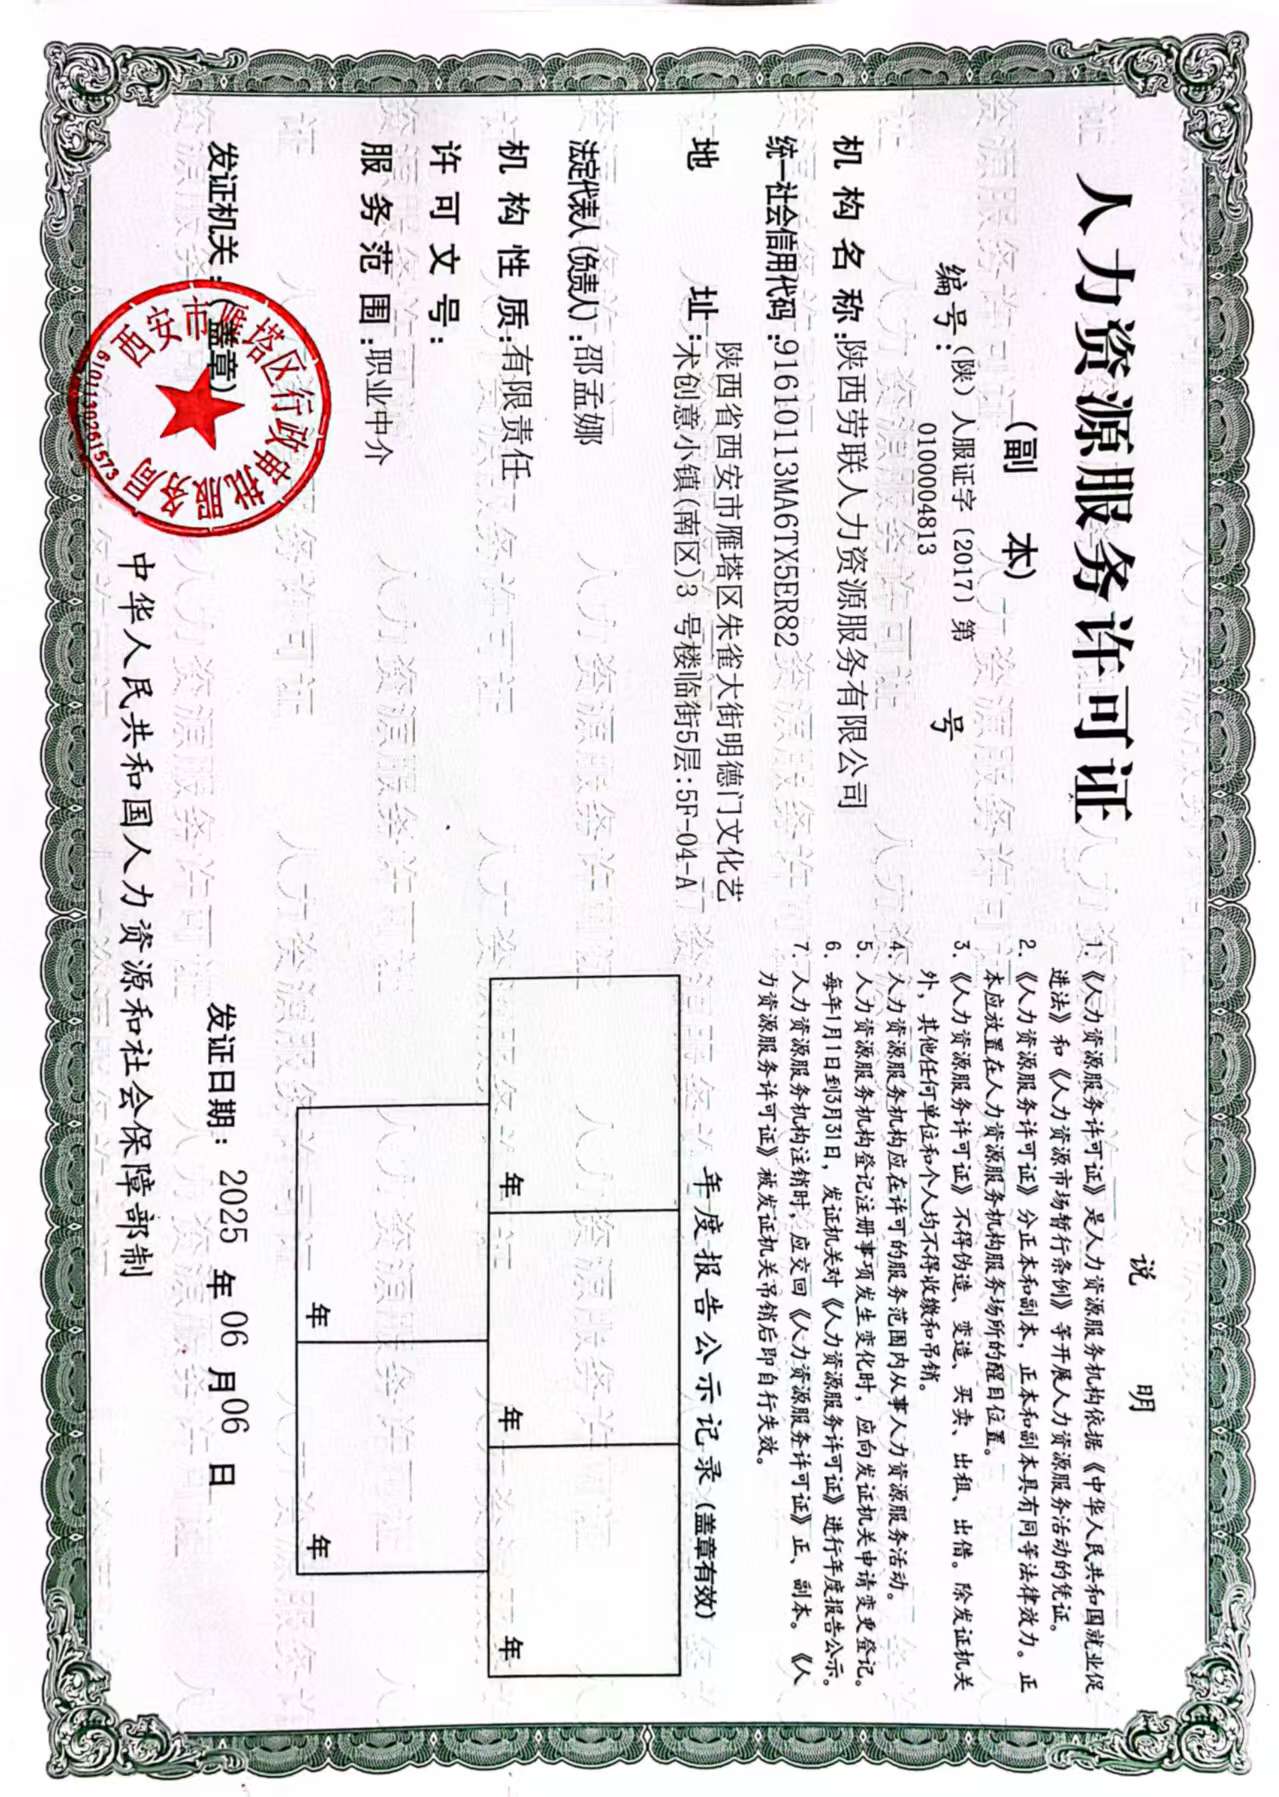 人力资源服务许可证
(副 本)
编号: (陕) 人服证字〔2017〕第 0100004813 号
机构名称:陕西劳联人力资源服务有限公司
统一社会信用代码:91610113MA6TX5ER82
地 址:陕西省西安市雁塔区朱雀大街明德门文化艺
术创意小镇(南区)3 号楼临街5层:5F-04-A
法定代表人(负责人):邵孟娜
机构性质:有限责任
许可文号:
服务范围:职业中介
发证机关:(盖章)
西安市雁塔区行政审批服务局
6101130261573
说 明
1.《人力资源服务许可证》是人力资源服务机构依据《中华人民共和国就业促
进法》和《人力资源市场暂行条例》等开展人力资源服务活动的凭证。
2.《人力资源服务许可证》分正本和副本,正本和副本具有同等法律效力。正
本应放置在人力资源服务机构服务场所的醒目位置。
3.《人力资源服务许可证》不得伪造、变造、买卖、出租、出借。除发证机关
外,其他任何单位和个人均不得收缴和吊销。
4. 人力资源服务机构应在许可的服务范围内从事人力资源服务活动。
5. 人力资源服务机构登记注册事项发生变化时,应向发证机关申请变更登记。
6. 每年1月1日到3月31日,发证机关对《人力资源服务许可证》进行年度报告公示。
7. 人力资源服务机构注销时,应交回《人力资源服务许可证》正、副本。《人
力资源服务许可证》被发证机关吊销后即自行失效。
年度报告公示记录(盖章有效)
年
年
年
年
年
发证日期: 2025 年 06 月 06 日
中华人民共和国人力资源和社会保障部制